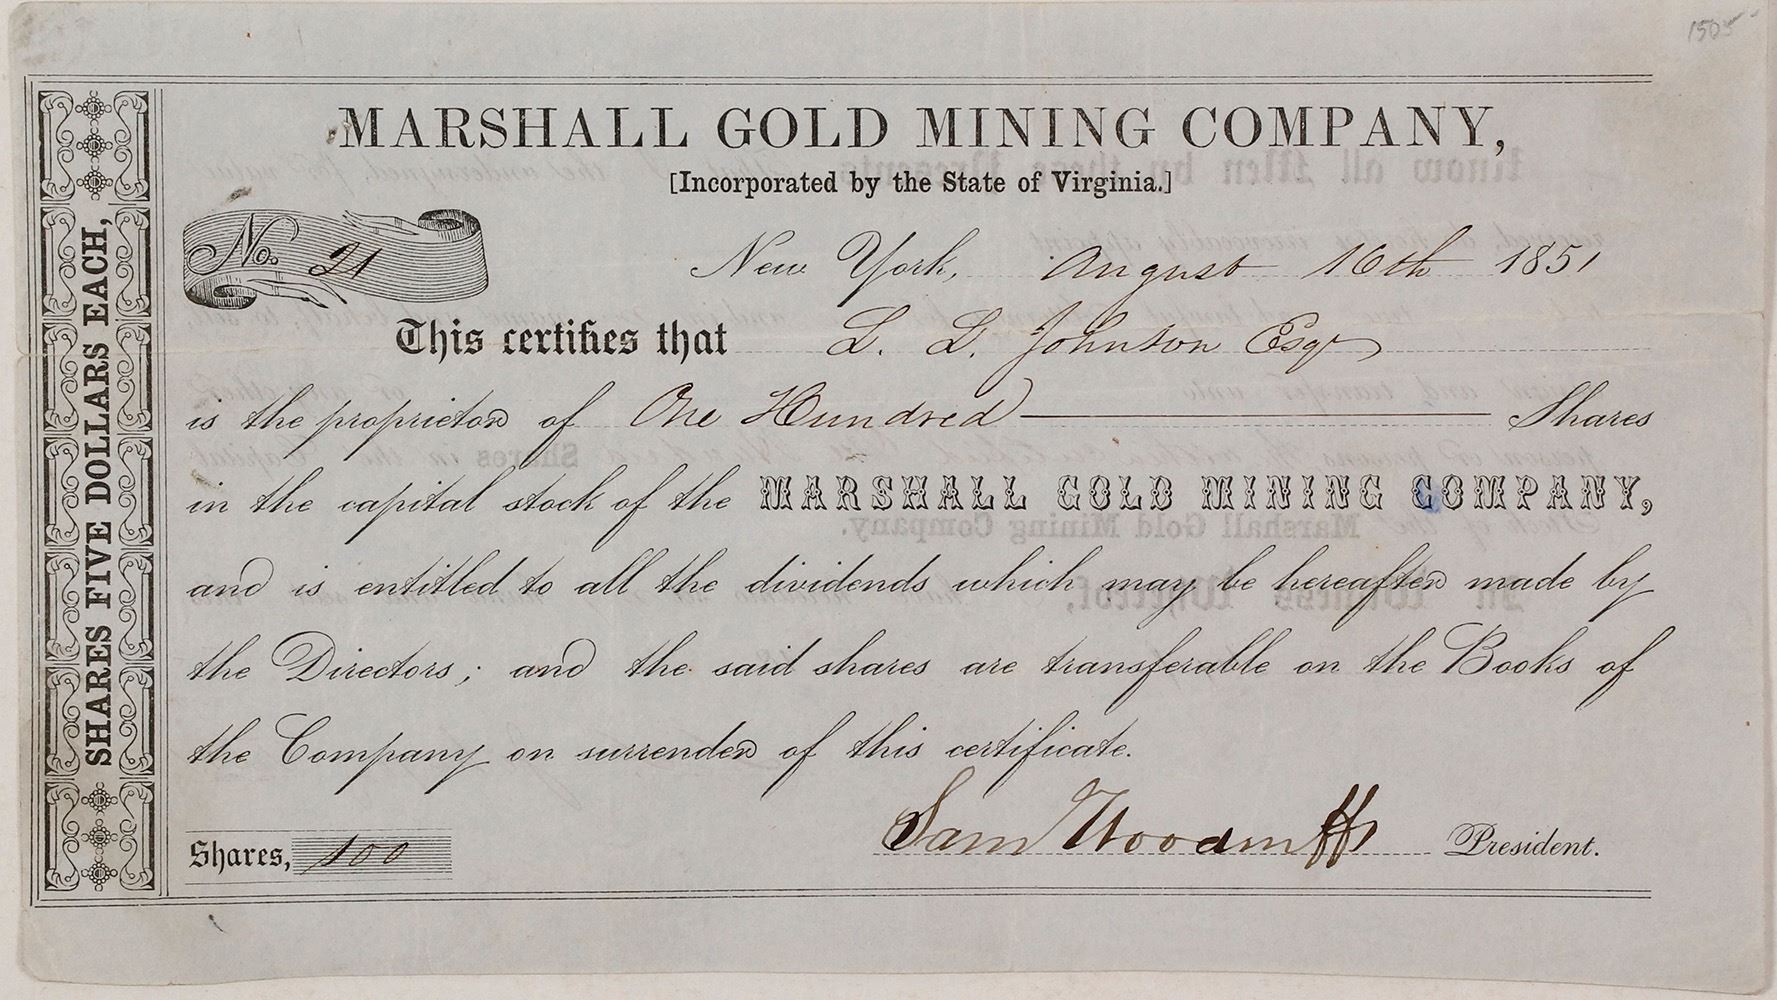 1505
MARSHALL GOLD MINING COMPANY,
[Incorporated by the State of Virginia.]
No. 21
New York, August 16th 1851
This certifies that L. L. Johnson Esqr
is the proprietor of One Hundred Shares
in the capital stock of the MARSHALL GOLD MINING COMPANY,
and is entitled to all the dividends which may be hereafter made by
the Directors; and the said shares are transferable on the Books of
the Company on surrender of this certificate.
Sam Woodruff President.
Shares, 100
SHARES FIVE DOLLARS EACH,